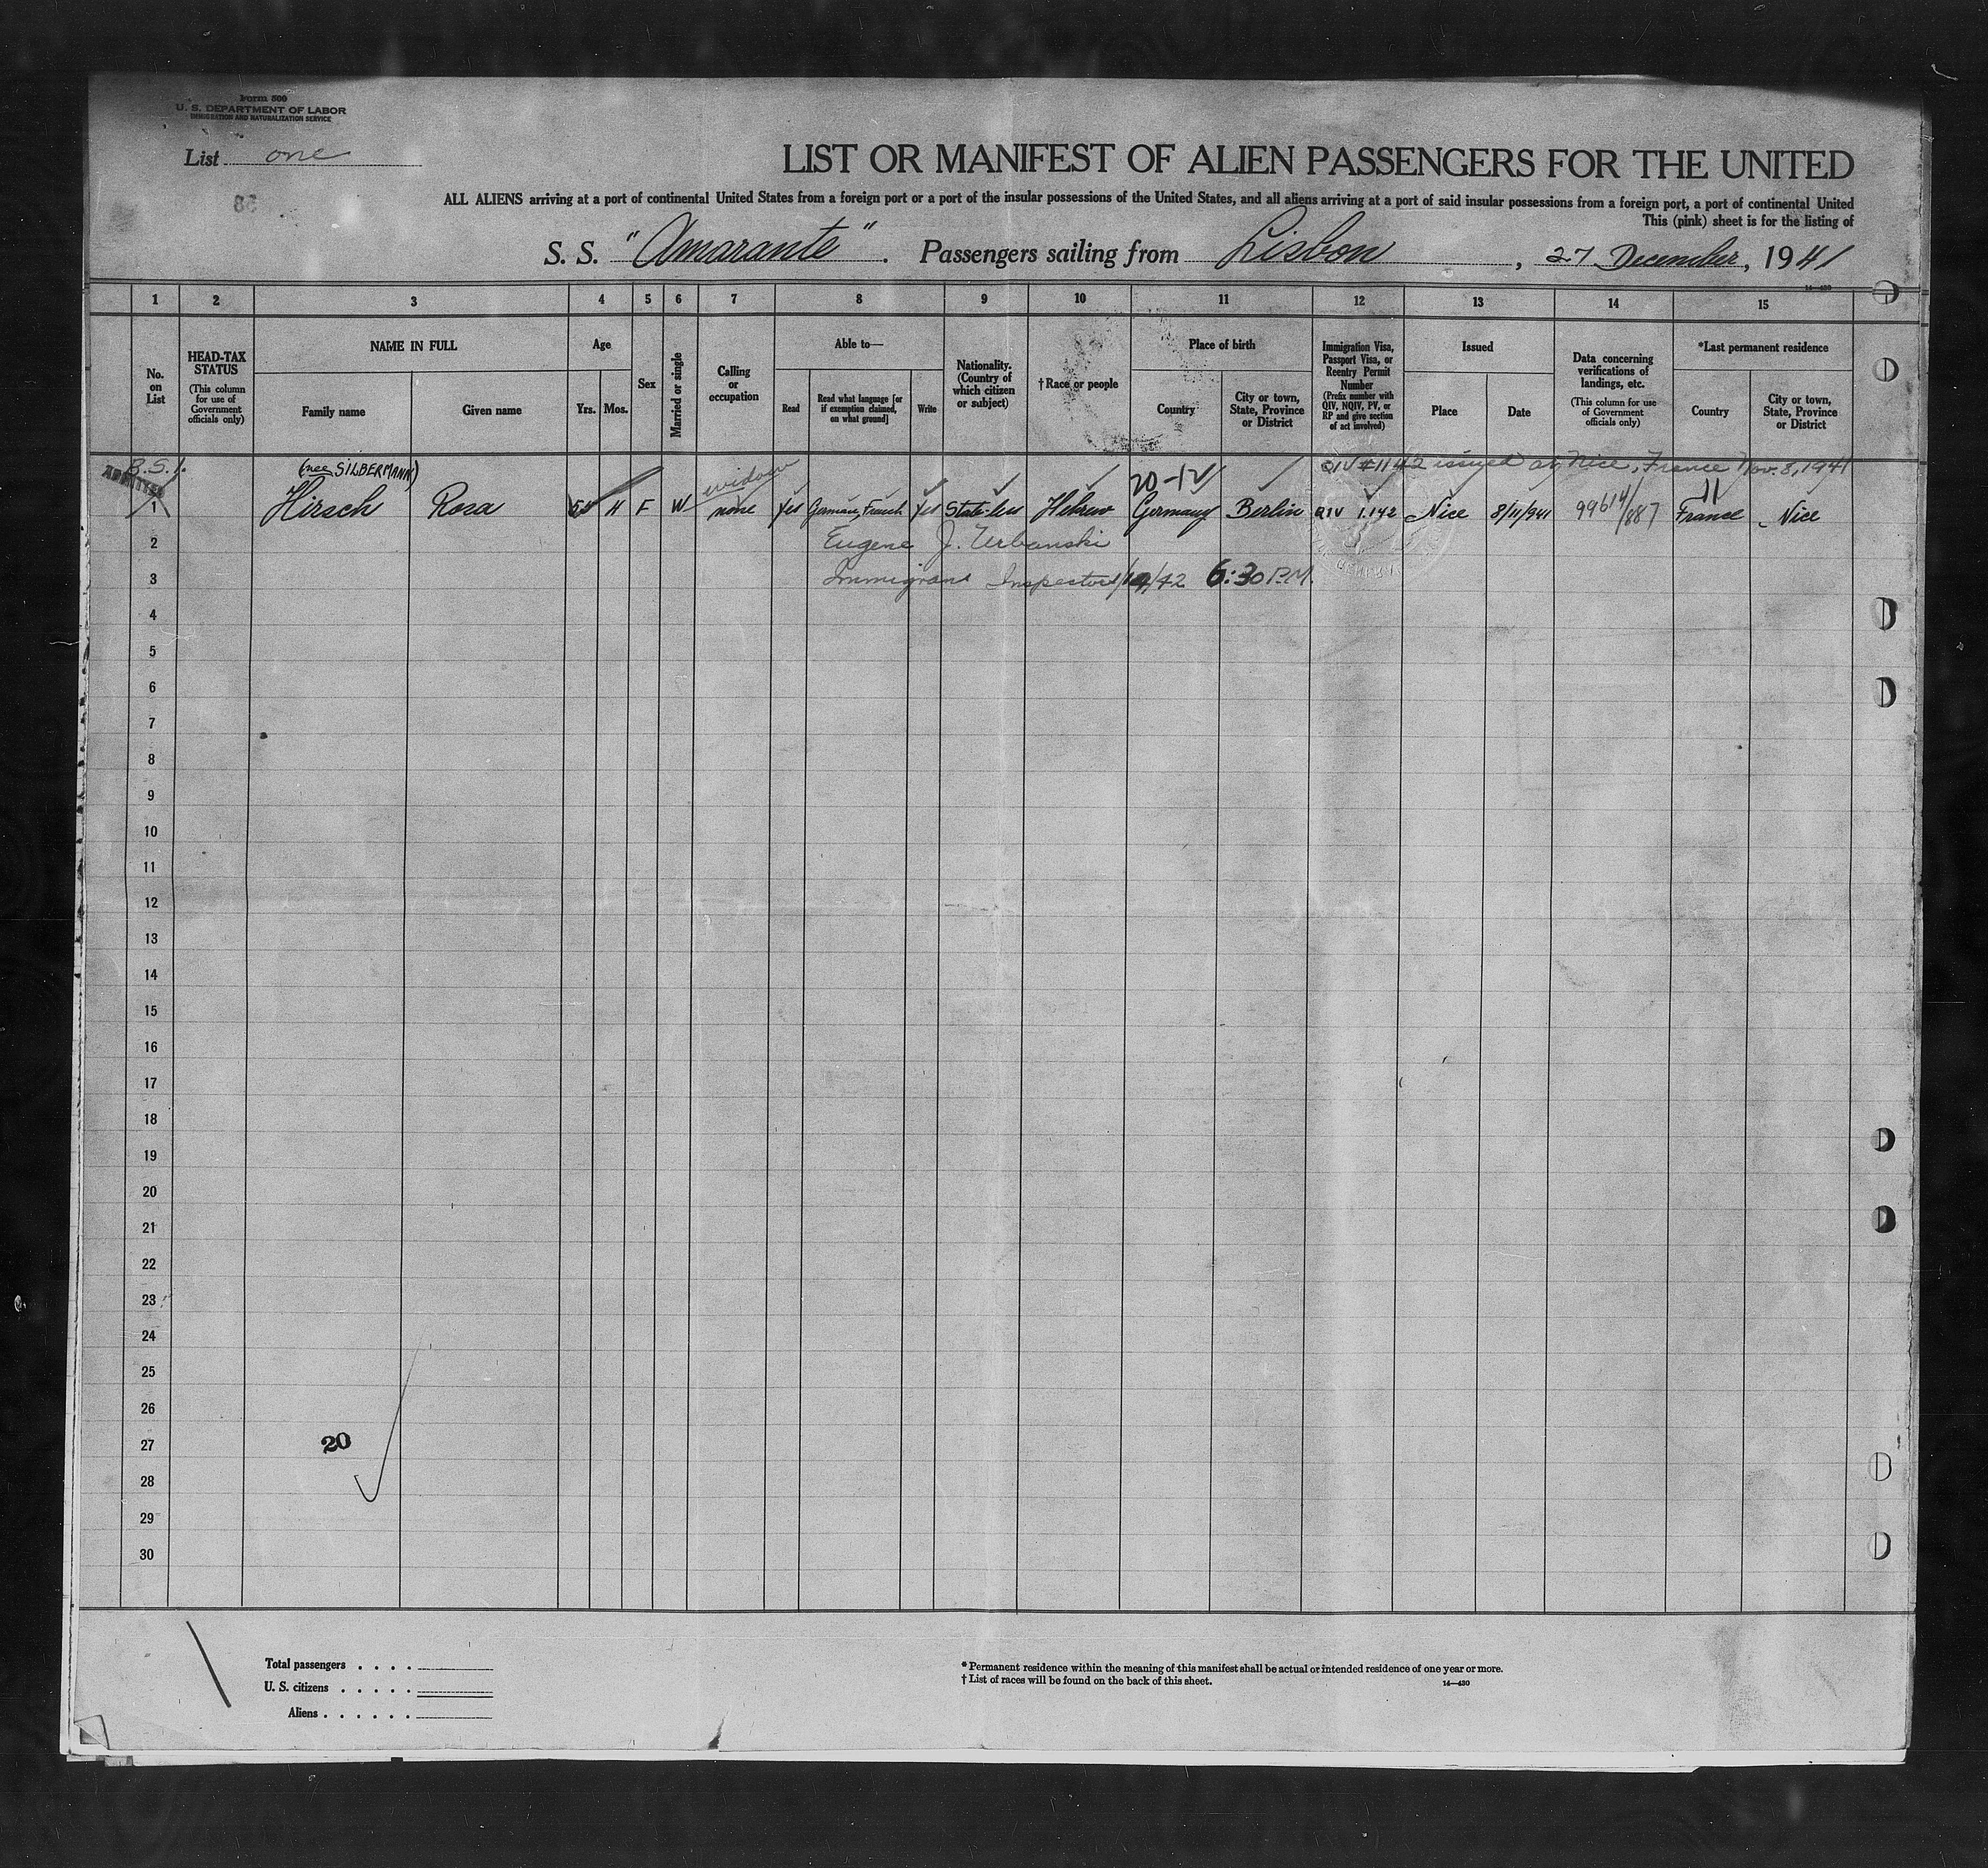 Form 500
U. S. DEPARTMENT OF LABOR
IMMIGRATION AND NATURALIZATION SERVICE
List one
38
LIST OR MANIFEST OF ALIEN PASSENGERS FOR THE UNITED
ALL ALIENS arriving at a port of continental United States from a foreign port or a port of the insular possessions of the United States, and all aliens arriving at a port of said insular possessions from a foreign port, a port of continental United
This (pink) sheet is for the listing of
S. S. "Amarante". Passengers sailing from Lisbon, 27 December, 1941
14—430
1 2 3 4 5 6 7 8 9 10 11 12 13 14 15
No. on List
HEAD-TAX STATUS
(This column for use of Government officials only)
NAME IN FULL
Family name
Given name
Age
Yrs.
Mos.
Sex
Married or single
Calling or occupation
Able to—
Read
Read what language [or if exemption claimed, on what ground]
Write
Nationality. (Country of which citizen or subject)
†Race or people
Place of birth
Country
City or town, State, Province or District
Immigration Visa, Passport Visa, or Reentry Permit Number
(Prefix number with QIV, NQIV, PV, or RP and give section of act involved)
Issued
Place
Date
Data concerning verifications of landings, etc.
(This column for use of Government officials only)
*Last permanent residence
Country
City or town, State, Province or District
B.S.I. (nee SILBERMANN) widow 20-12 QIV #1142 issued at Nice, France Nov. 8, 1941
ADMITTED
1 Hirsch Rosa 11 F W none yes German, French yes State-less Hebrew Germany Berlin QIV 1.142 Nice 8/11/941 99614/887 France Nice
2 Eugene J. Urbanski
3 Immigrant Inspector 6:30 P.M.
4
5
6
7
8
9
10
11
12
13
14
15
16
17
18
19
20
21
22
23
24
25
26
27 20
28
29
30
Total passengers . . . .
U. S. citizens . . . . .
Aliens . . . . . .
* Permanent residence within the meaning of this manifest shall be actual or intended residence of one year or more.
† List of races will be found on the back of this sheet.
14—430